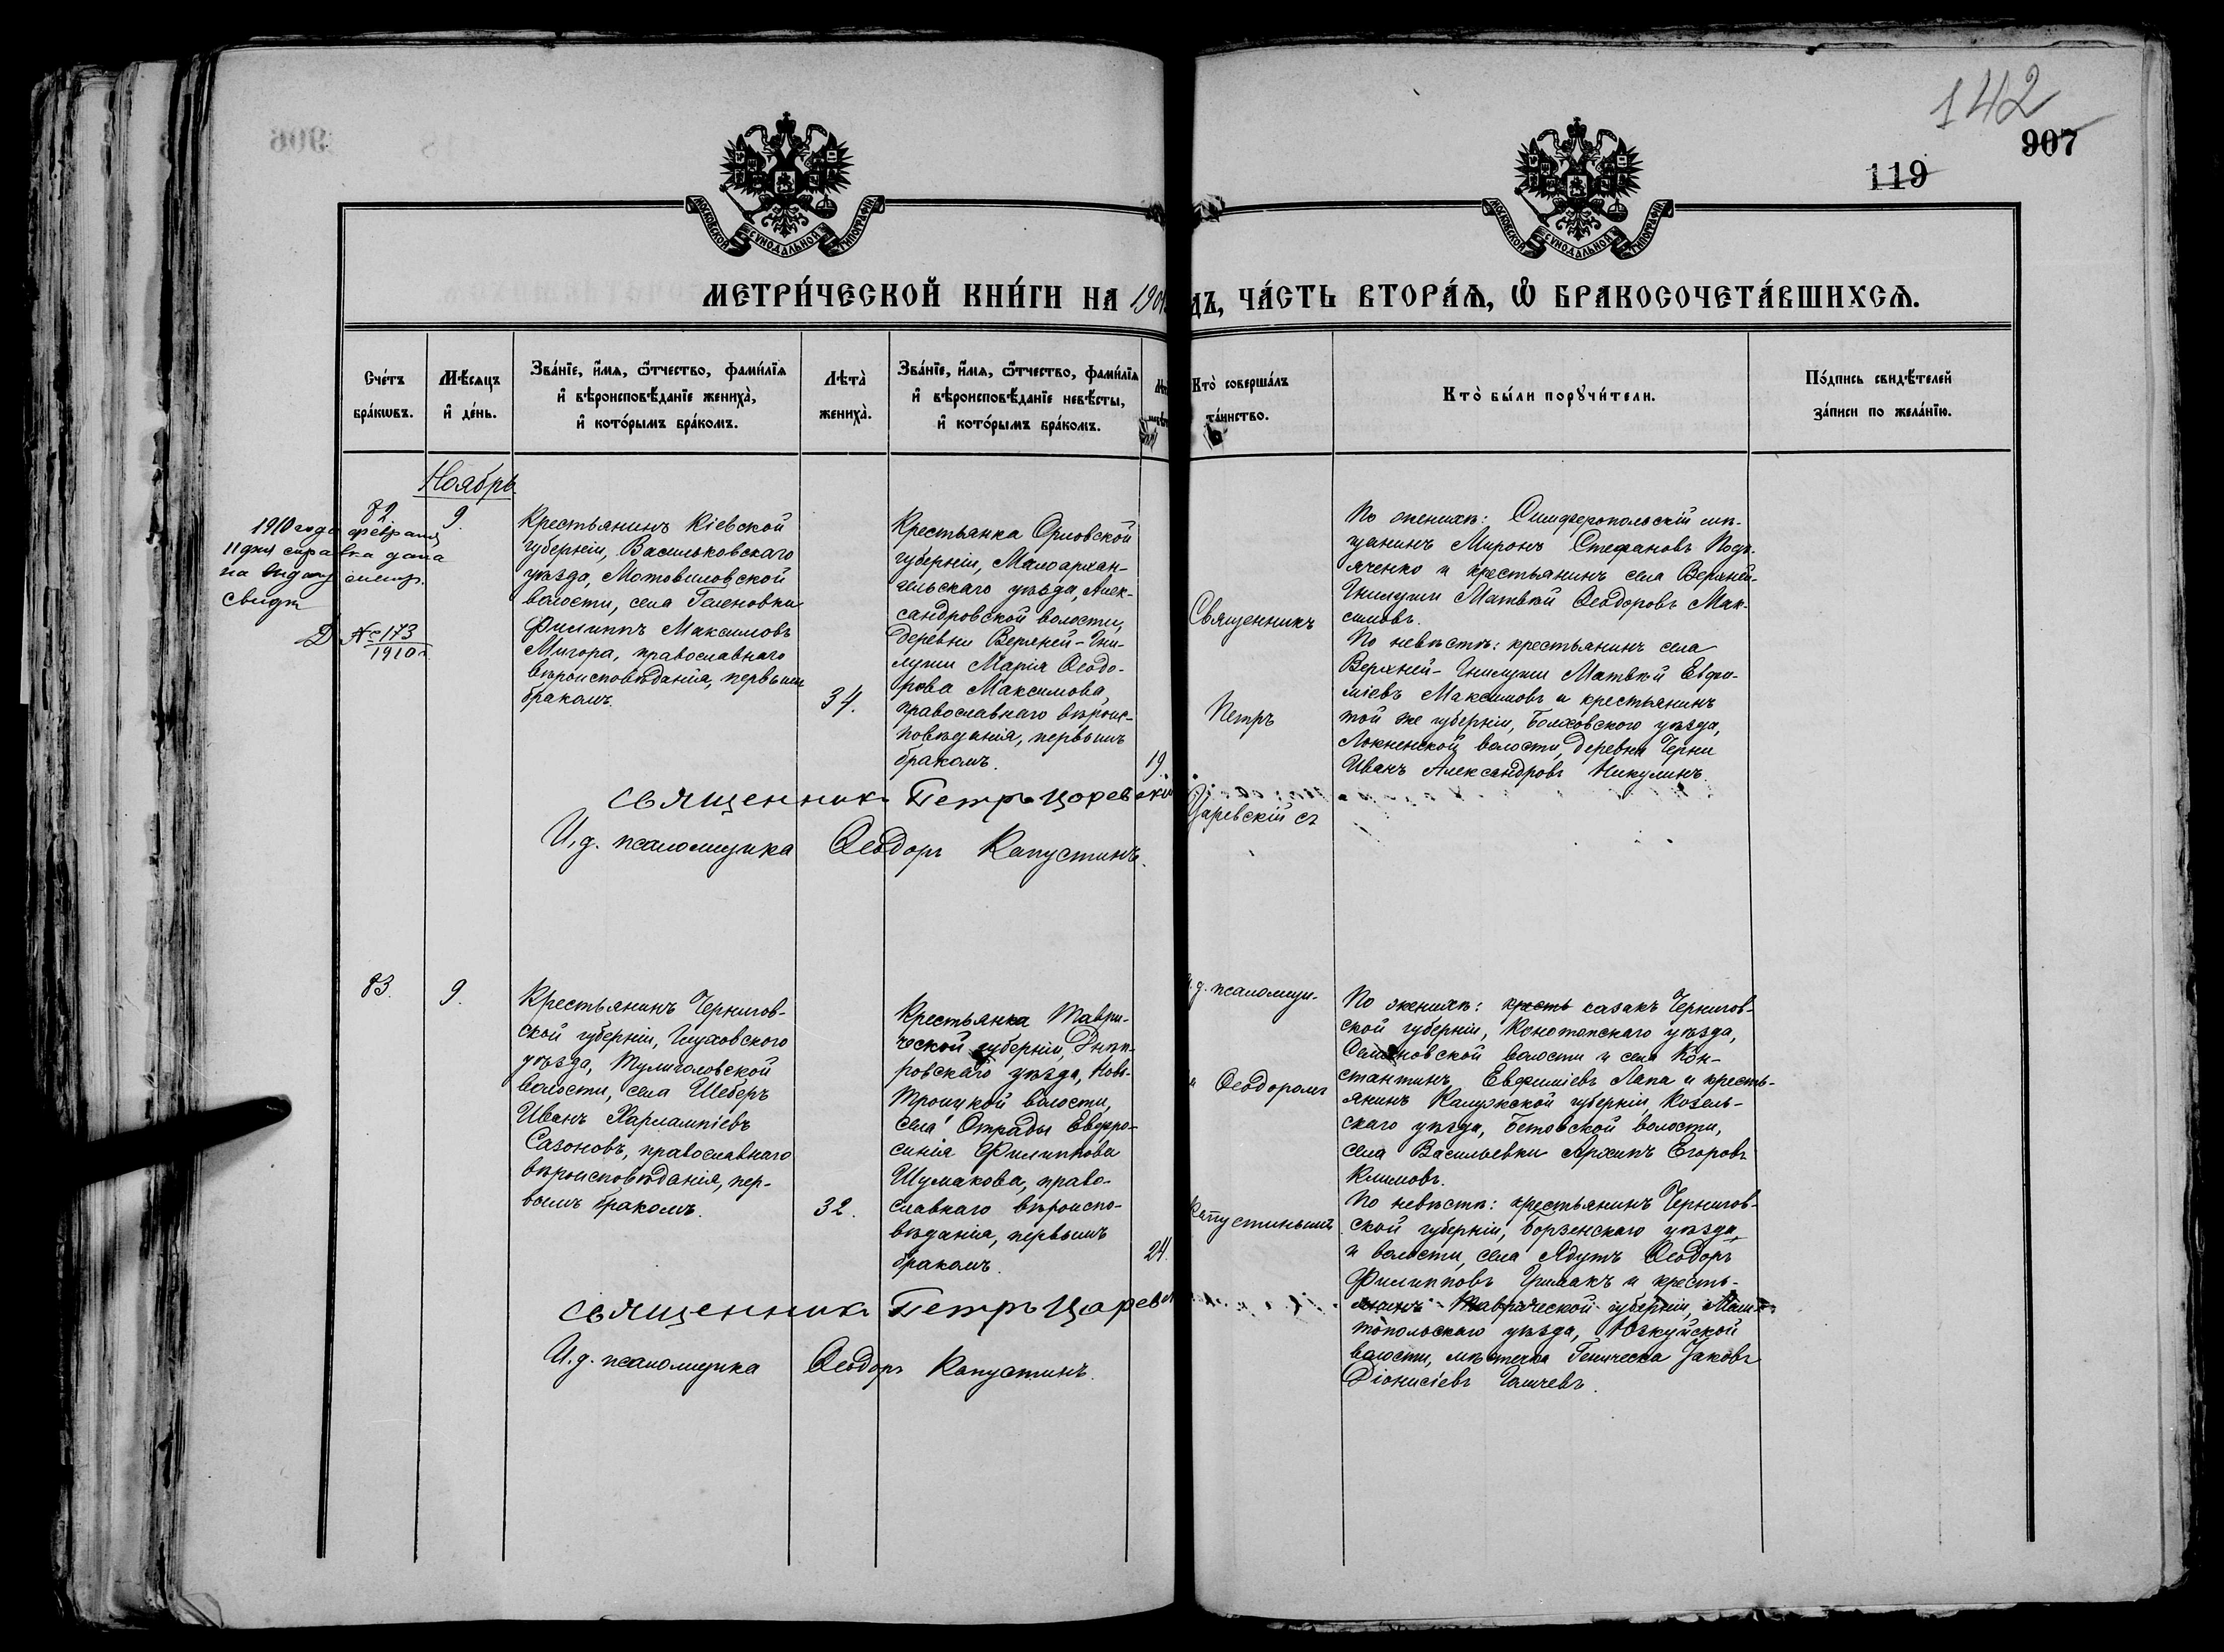 142
907
119
МОСКОВСКОЙ СУНОДАЛЬНОЙ ТИПОГРАФІИ
МОСКОВСКОЙ СУНОДАЛЬНОЙ ТИПОГРАФІИ
МЕТРИ́ЧЕСКОЙ КНИ́ГИ НА 190
ДЪ, ЧА́СТЬ ВТОРА́Ѧ, Ѽ БРАКОСОЧЕТА́ВШИХСѦ.
Сче́тъ
бра́кѡвъ.
Мѣ́сѧцъ
и҆ де́нь.
Зва́нїе, и҆́мѧ, ѻ҆́тчество, фами́лїѧ
и҆ вѣроисповѣ́данїе жениха̀,
и҆ кото́рымъ бра́комъ.
Лѣ́та
жениха̀.
Зва́нїе, и҆́мѧ, ѻ҆́тчество, фами́лїѧ
и҆ вѣроисповѣ́данїе невѣ́сты,
и҆ кото́рымъ бра́комъ.
Кто̀ соверша́лъ
та́инство.
Кто̀ бы́ли порꙋчи́тели.
По́дпись свидѣ́телей
за́писи по жела́нїю.
Ноябрь
82
9.
1910 года февраля
11 дня справка дана
на выдачу метр.
свидѣт
Д №173
1910 г.
Крестьянинъ Кіевской
губерніи, Васильковскаго
уѣзда, Мотовиловской
волости, села Геленовки
Филиппъ Максимовъ
Мигора, православнаго
вѣроисповѣданія, первымъ
бракомъ.
34.
Крестьянка Орловской
губерніи, Малоархан-
гельскаго уѣзда, Алек-
сандровской волости,
деревни Верхней-Гни-
луши Марія Ѳеодо-
рова Максимова,
православнаго вѣроис-
повѣданія, первымъ
бракомъ.
19.
Священникъ
Петръ
Царевскій съ
По женихѣ: Симферопольскій мѣ-
щанинъ Миронъ Стефановъ Подъ-
яченко и крестьянинъ села Верхней-
Гнилуши Матвѣй Ѳеодоровъ Мак-
симовъ.
По невѣстѣ: крестьянинъ села
Верхней-Гнилуши Матвѣй Евфи-
міевъ Максимовъ и крестьянинъ
той же губерніи, Болховскаго уѣзда,
Локненской волости, деревни Черни
Иванъ Александровъ Никулинъ.
Священникъ Петръ Царевскій
И.д. псаломщика Ѳеодоръ Капустинъ.
83.
9.
Крестьянинъ Чернигов-
ской губерніи, Глуховского
уѣзда, Тулиголовской
волости, села Шеберъ
Иванъ Харлампіевъ
Сазоновъ, православнаго
вѣроисповѣданія, пер-
вымъ бракомъ.
32.
Крестьянка Таври-
ческой губерніи, Днѣп-
ровскаго уѣзда, Ново-
Троицкой волости,
села Отрады Евфро-
синія Филиппова
Шумакова, право-
славнаго вѣроиспо-
вѣданія, первымъ
бракомъ.
24.
и.д. псаломщи-
и Ѳеодоромъ
Капустинымъ
По женихѣ: кресть казакъ Чернигов-
ской губерніи, Конотопскаго уѣзда,
волости и села Кон-
стантинъ Евфиміевъ Лапа и кресть-
янинъ Калужской губерніи, Козель-
скаго уѣзда, Бетовской волости,
села Васильевки Архипъ Егоровъ
Климовъ.
По невѣстѣ: крестьянинъ Чернигов-
ской губерніи, Борзенскаго уѣзда,
и волости, села Ядутъ Ѳеодоръ
Филипповъ и кресть-
янинъ Таврической губерніи, Мели-
топольскаго уѣзда, Юзкуйской
волости, мѣстечка Геническа Яковъ
Діонисіевъ
Священникъ Петръ Царев
И.д. псаломщика Ѳеодоръ Капустинъ.